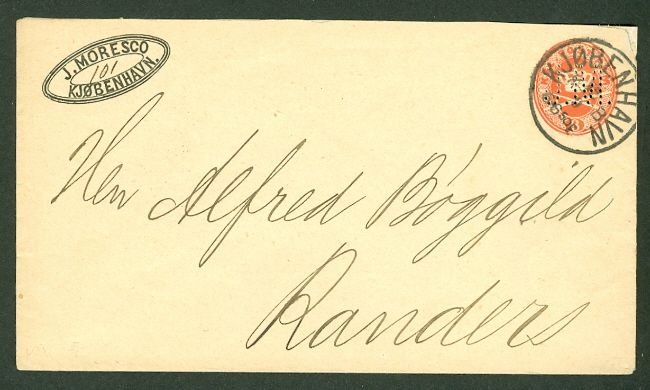 J. MORESCO
101
KJØBENHAVN.
KJØBENHAVN
Herr Alfred Bøggild
Randers